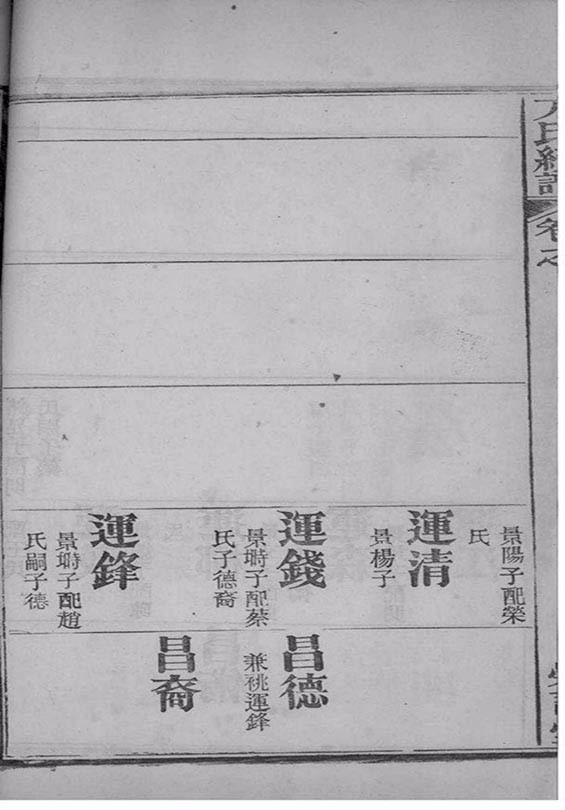 氏續譜
卷之
景陽子配榮
氏
運清
景楊子
運錢
景塒子配蔡
氏子德裔
運鋒
景塒子配趙
氏嗣子德
昌德
兼祧運鋒
昌裔